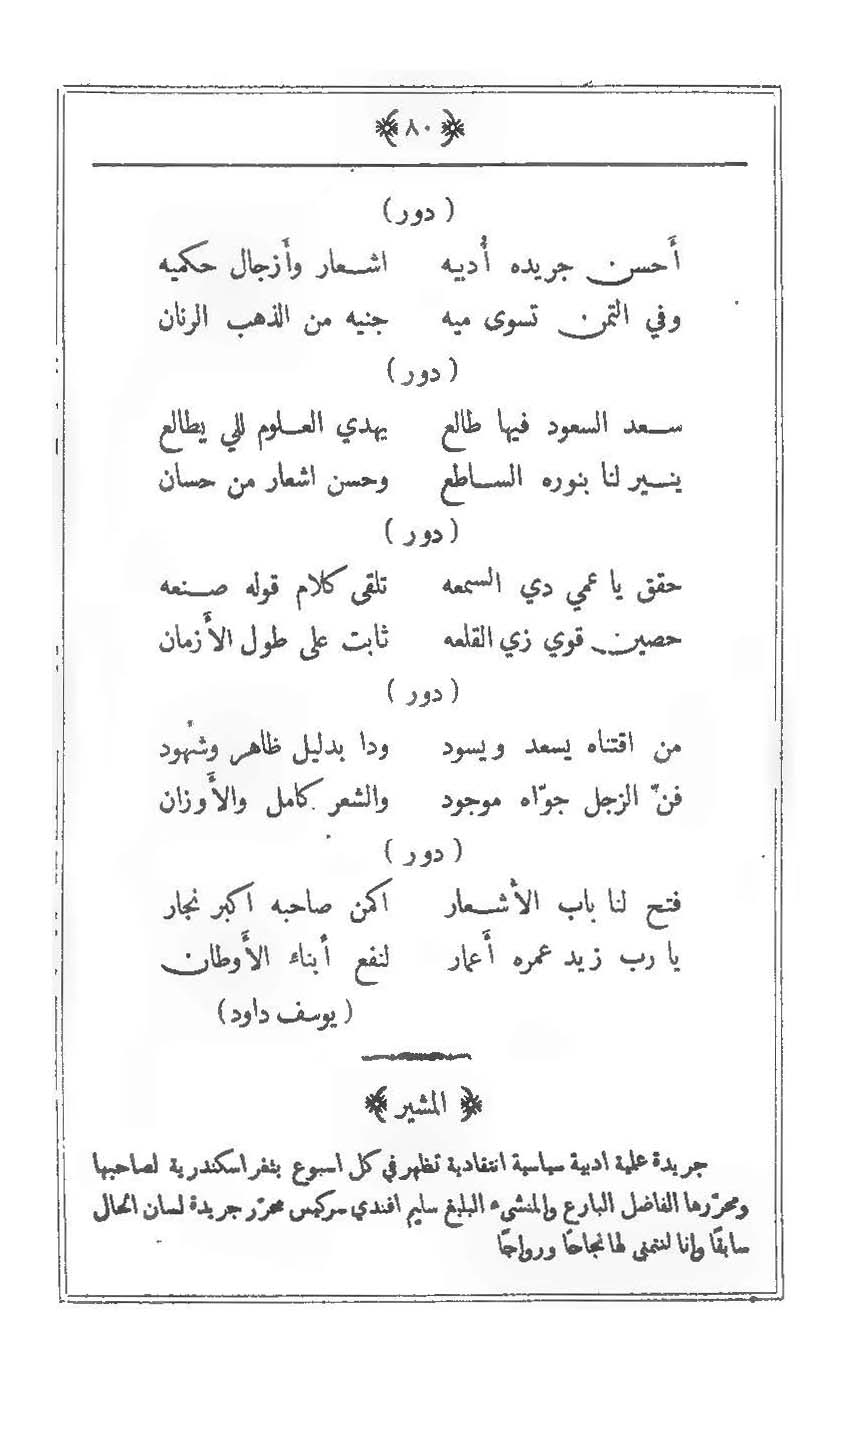 ﴿ ٨٠ ﴾
( دور )
أَحسن جريده أُدبيه اشعار وأَزجال حكميه
وفي التمن تسوى ميه جنيه من الذهب الرنان
( دور )
سعد السعود فيها طالع يهدي العلوم للي يطالع
ينسير لنا بنوره الساطع وحسن اشعار من حسان
( دور )
حقق يا عمي دي السمعه تلقى كلام قوله صنعه
حصين قوي زي القلعه ثابت على طول الأَزمان
( دور )
من اقتناه يسعد ويسود ودا بدليل ظاهر وشهود
فنّ الزجل جوّاه موجود والشعر كامل والأَوزان
( دور )
فتح لنا باب الأشعار اكمن صاحبه اكبر نجار
يا رب زيد عمره أَعمار لنفع أبناء الأَوطان
( يوسف داود )
﴿ المشير ﴾
جريدة علمية ادبية سياسية انتقادية تظهر في كل اسبوع بثغر اسكندرية لصاحبها
ومحرّرها الفاضل البارع والمنشىء البليغ سليم افندي سركيس محرّر جريدة لسان الحال
سابقًا وإنا لنتمنى لها نجاحًا ورواجًا